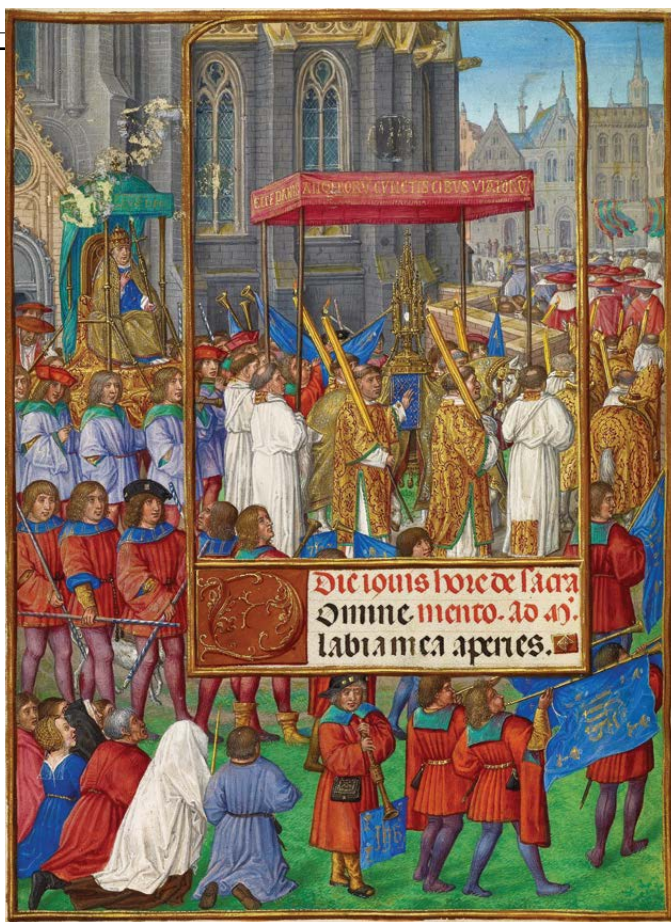 ECCE PANIS ANGELORV CVNCTIS CIBVS VIATORV
Die iouis hore de sacra
Omine mento. ad m̄.
labia mea aperies.
ihs